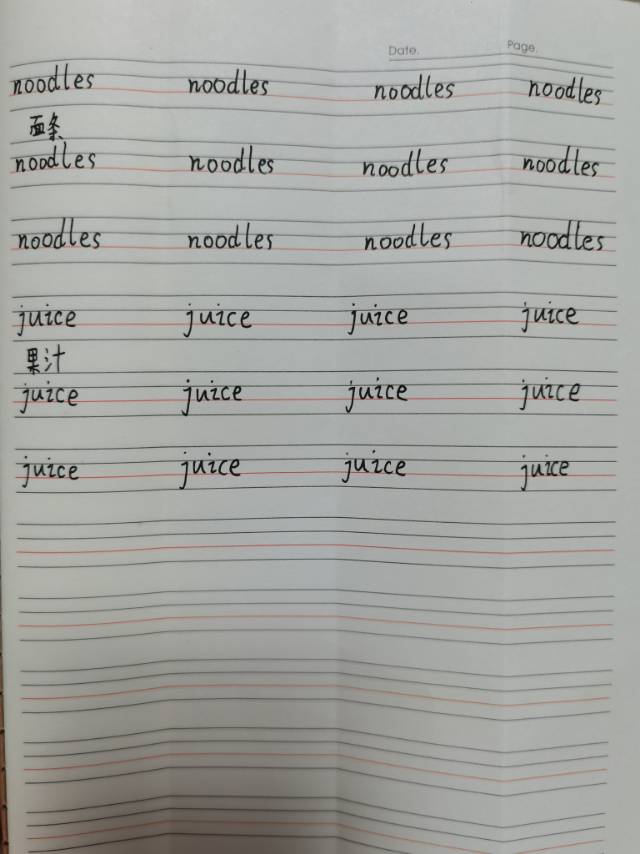 Date. Page.
noodles noodles noodles noodles
面条
noodles noodles noodles noodles
noodles noodles noodles noodles
juice juice juice juice
果汁
juice juice juice juice
juice juice juice juice